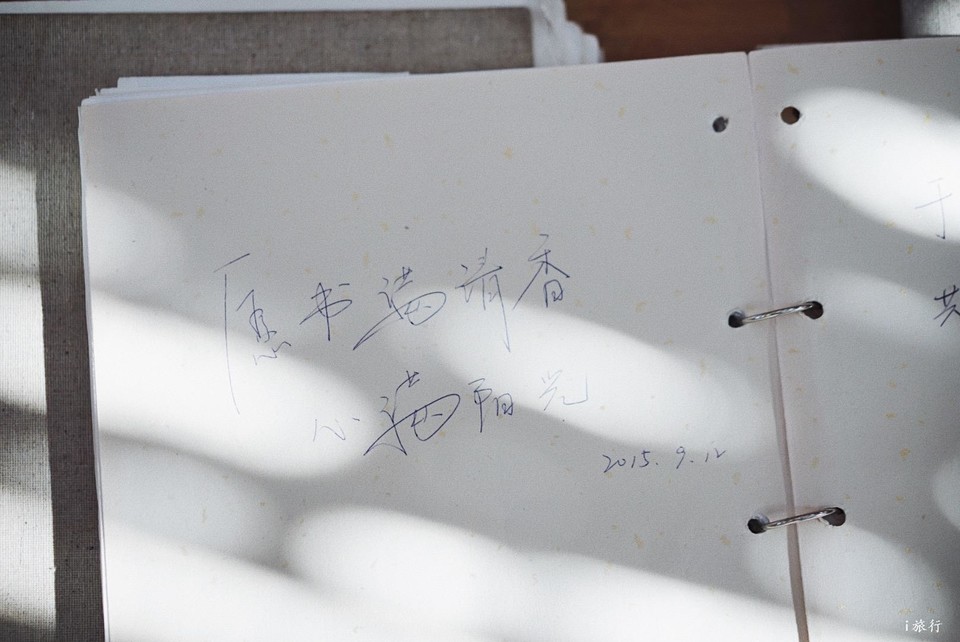 愿书满清香
心满阳光
2015.9.12
于
共
i旅行